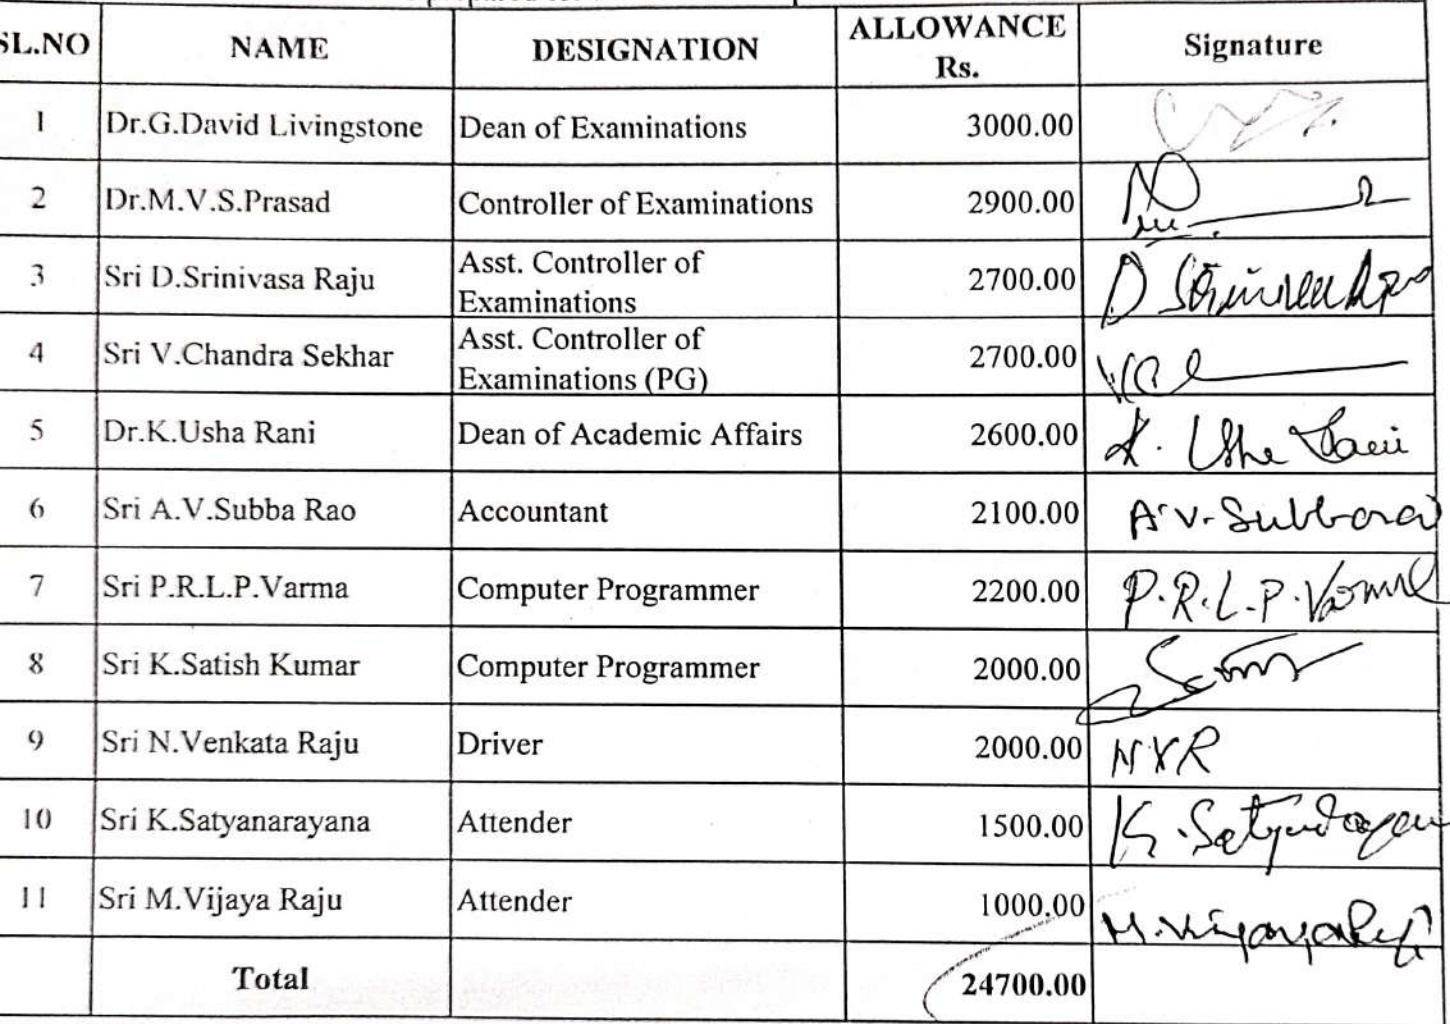 SL.NO NAME DESIGNATION ALLOWANCE Rs. Signature
1 Dr.G.David Livingstone Dean of Examinations 3000.00
2 Dr.M.V.S.Prasad Controller of Examinations 2900.00
3 Sri D.Srinivasa Raju Asst. Controller of Examinations 2700.00 D
4 Sri V.Chandra Sekhar Asst. Controller of Examinations (PG) 2700.00
5 Dr.K.Usha Rani Dean of Academic Affairs 2600.00 K. Usha Rani
6 Sri A.V.Subba Rao Accountant 2100.00 A.V.Subbarao
7 Sri P.R.L.P.Varma Computer Programmer 2200.00 P.R.L.P.Varma
8 Sri K.Satish Kumar Computer Programmer 2000.00
9 Sri N.Venkata Raju Driver 2000.00 NVR
10 Sri K.Satyanarayana Attender 1500.00
11 Sri M.Vijaya Raju Attender 1000.00
Total 24700.00